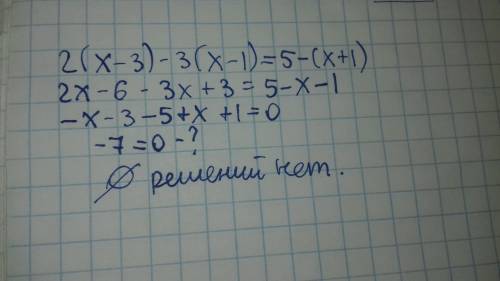 2(x-3)-3(x-1)=5-(x+1)
2x-6-3x+3=5-x-1
-x-3-5+x+1=0
-7=0-?
∅ решений нет.